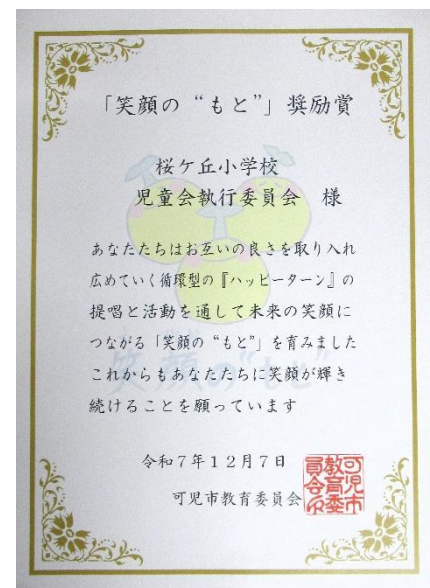 「笑顔の“もと”」奨励賞
桜ケ丘小学校
児童会執行委員会　様
あなたたちはお互いの良さを取り入れ
広めていく循環型の『ハッピーターン』の
提唱と活動を通して未来の笑顔に
つながる「笑顔の“もと”」を育みました
これからもあなたたちに笑顔が輝き
続けることを願っています
令和７年１２月７日
可児市教育委員会
可児市
教育委
員会